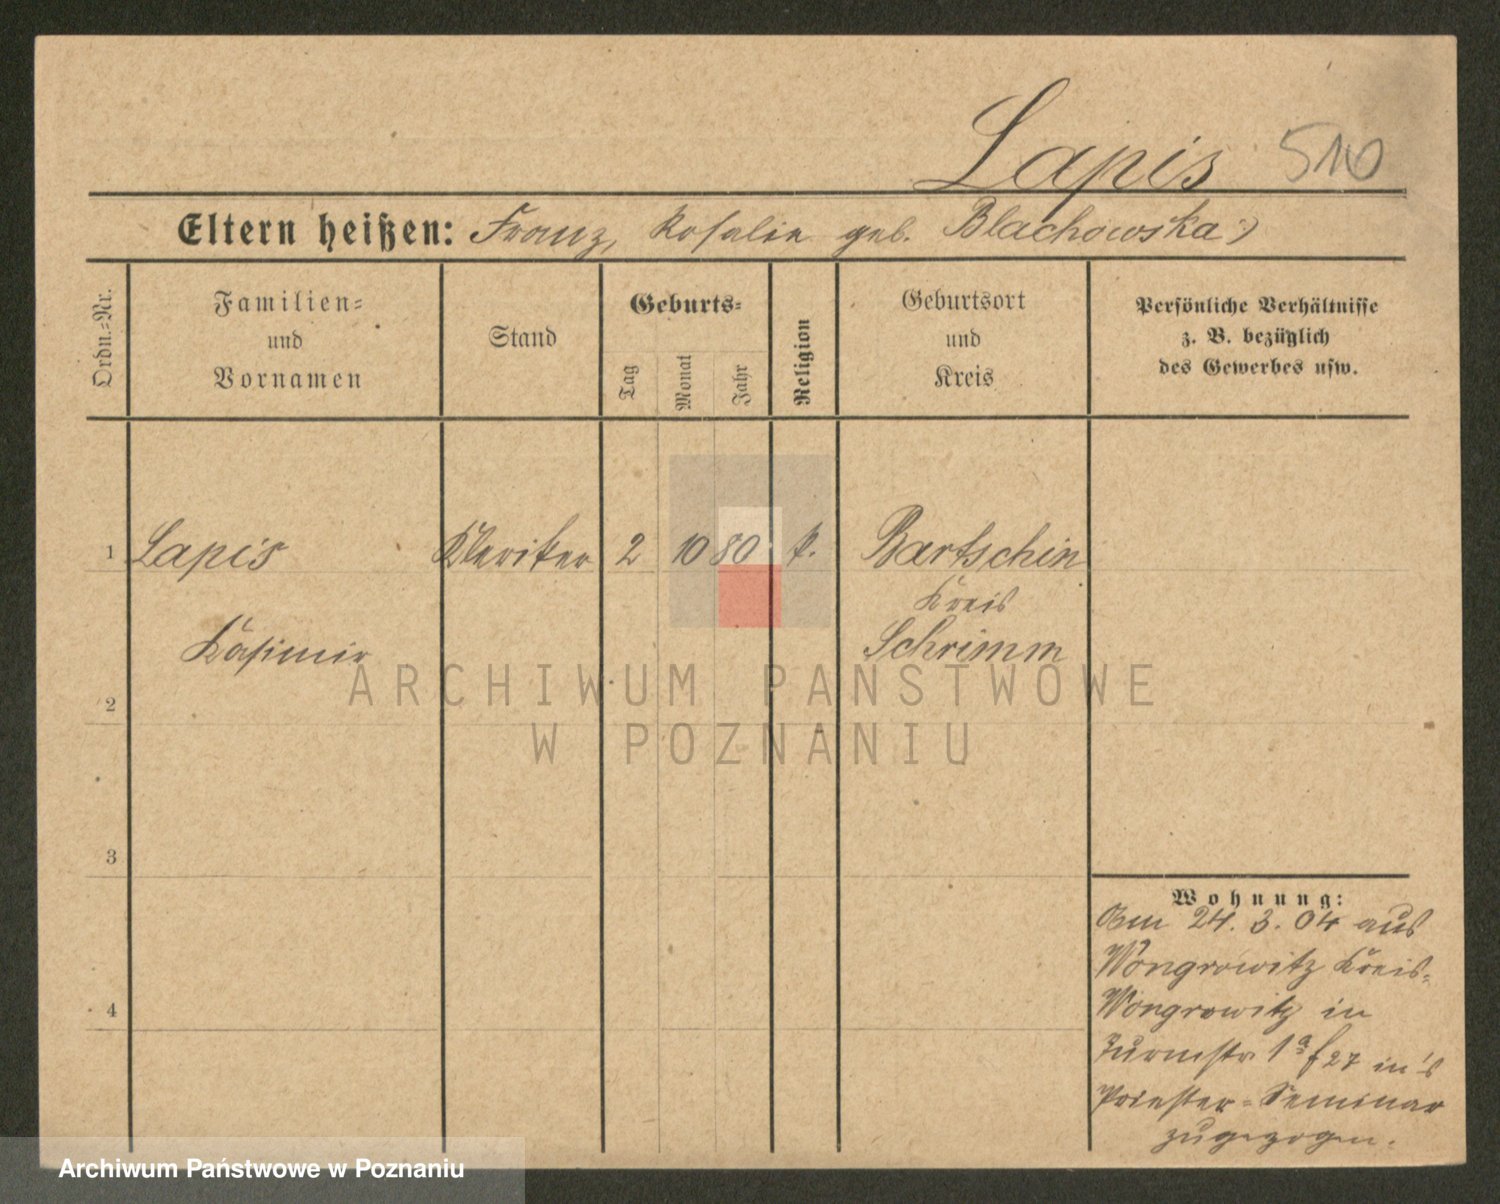 Lapis 510
Eltern heißen: Franz, Rosalie geb. Blachowska
Ordn.-Nr.
Familien-
und
Vornamen
Stand
Geburts-
Tag
Monat
Jahr
Religion
Geburtsort
und
Kreis
Persönliche Verhältnisse
z. B. bezüglich
des Gewerbes usw.
1 Lapis Kleriker 2 10 80 k. Bartschin
Kreis
Kasimir Schrimm
ARCHIWUM PAŃSTWOWE
2
W POZNANIU
3
Wohnung:
Am 24. 3. 04 aus
Wongrowitz Kreis-
4
Wongrowitz in
Turmstr 1a f 27 in's
Priester-Seminar
zugezogen.
Archiwum Państwowe w Poznaniu